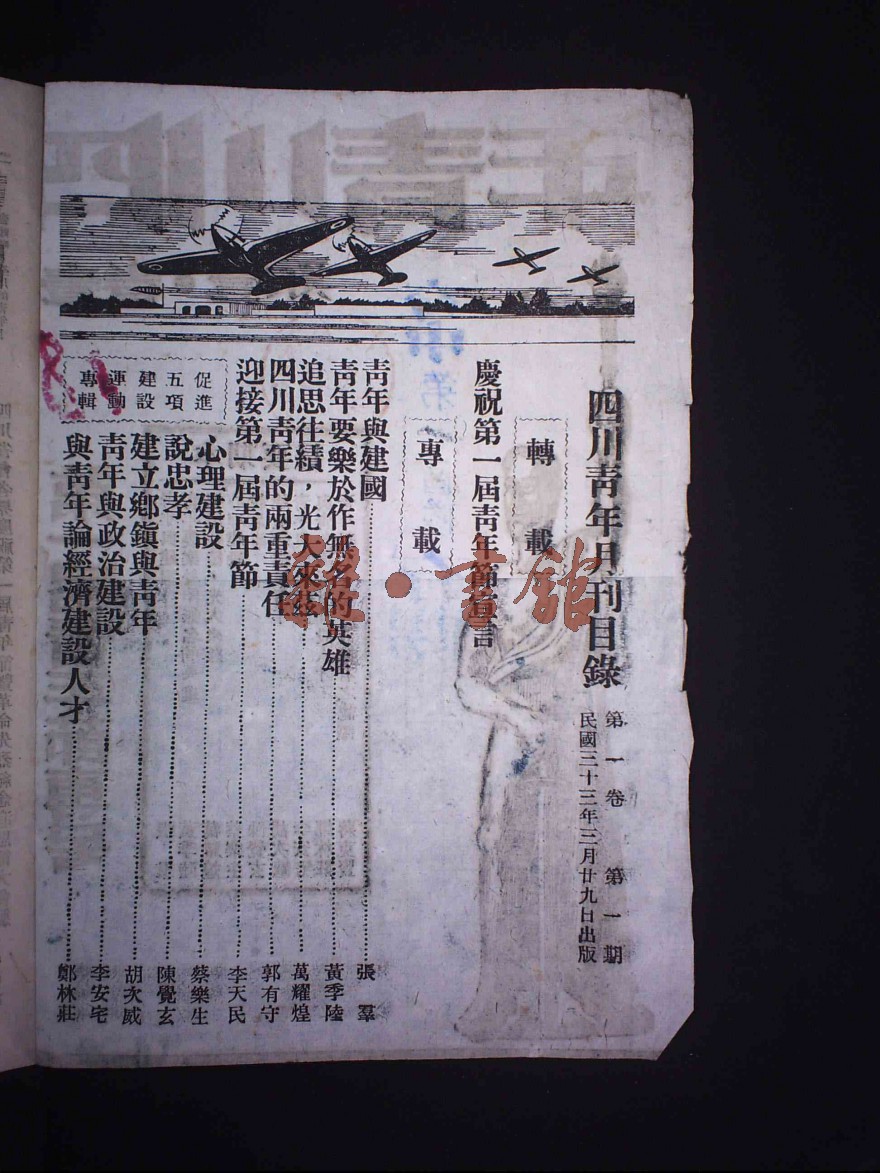 四川靑年月刊目錄
第一卷 第一期
民國三十三年三月廿九日出版
轉載
慶祝第一屆靑年節宣言
專載
靑年與建國 張羣
靑年要樂於作無名的英雄 黃季陸
追思往績，光大來茲 萬耀煌
四川靑年的兩重責任 郭有守
迎接第一屆靑年節 李天民
促進五項建設運動專輯
心理建設 蔡樂生
說忠孝 陳覺玄
建立鄕鎭與靑年 胡次威
靑年與政治建設 李安宅
與靑年論經濟建設人才 鄭林莊
雜·書館